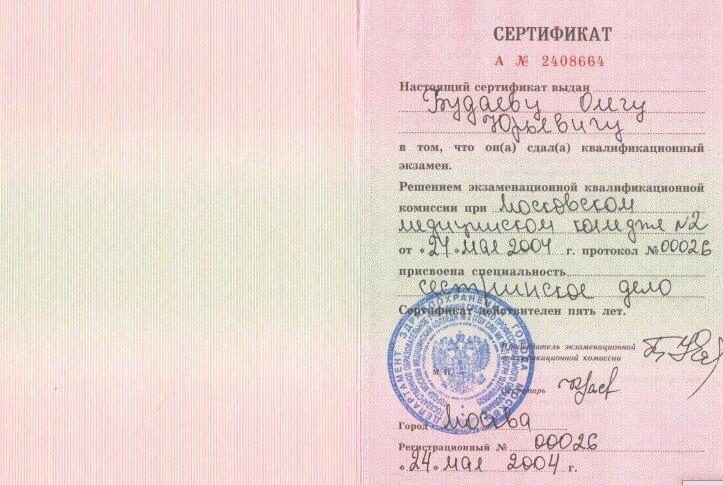 СЕРТИФИКАТ
А № 2408664
Настоящий сертификат выдан
Будаеву Олегу
Юрьевичу
в том, что он(а) сдал(а) квалификационный
экзамен.
Решением экзаменационной квалификационной
комиссии при Московском
медицинском коледже №2
от «24» мая 2004 г. протокол № 00026
присвоена специальность
сестринское дело
Сертификат действителен пять лет.
Председатель экзаменационной
квалификационной комиссии
М.П.
Секретарь
Город Москва
Регистрационный № 00026
«24» мая 2004 г.
ДЕПАРТАМЕНТ ЗДРАВООХРАНЕНИЯ ГОРОДА МОСКВЫ